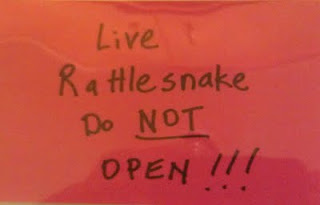 Live
Rattlesnake
Do NOT
OPEN!!!